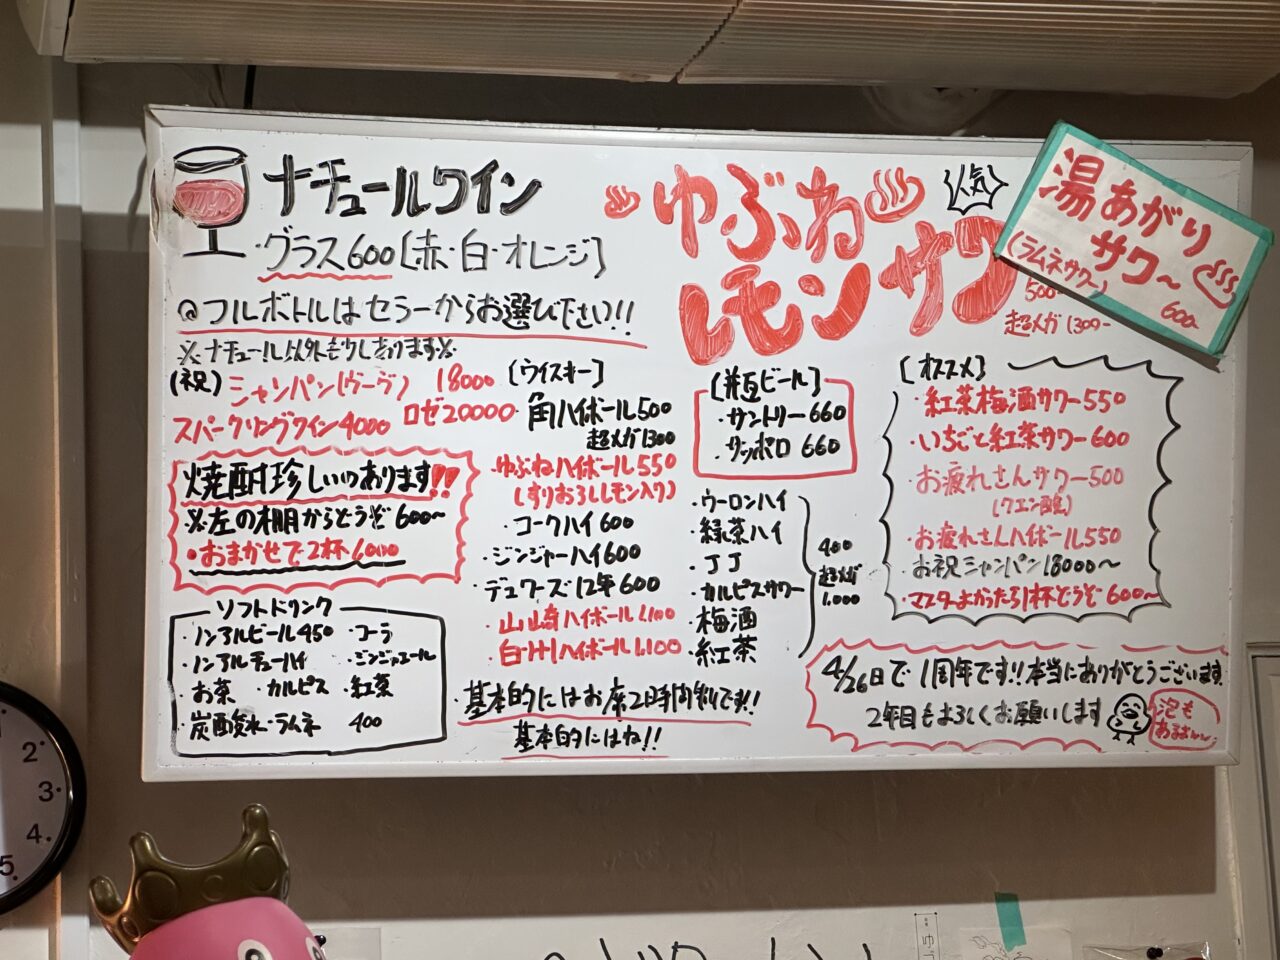 ナチュールワイン
・グラス600[赤・白・オレンジ]
@フルボトルはセラーからお選び下さい!!
※ナチュール以外も少しあります※
(祝) シャンパン(ヴーヴ) 18000
ロゼ20000
スパークリングワイン4000
焼酎珍しいのあります!!
※左の棚からどうぞ600~
・おまかせで2杯1000
ソフトドリンク
・ノンアルビール450 ・コーラ
・ノンアルチューハイ ・ジンジャエール
・お茶 ・カルピス ・紅茶
・炭酸水・ラムネ 400
(ウイスキー]
・角ハイボール500
超メガ1300
・ゆぶねハイボール550
(すりおろしレモン入り)
・コークハイ600
・ジンジャーハイ600
・デュワーズ12年600
・山崎ハイボール1.100
・白州ハイボール1.100
・基本的にはお席2時間制です!!
基本的にはね!!
ゆぶね
レモンサワ
人気
500-
超メガ1300-
湯あがり
サワ~
(ラムネサワー)
600-
[瓶ビール]
・サントリー660
・サッポロ660
・ウーロンハイ
・緑茶ハイ
・JJ
・カルピスサワー
・梅酒
・紅茶
400
超メガ
1.000
[オススメ]
・紅茶梅酒サワー550
・いちごと紅茶サワー600
・お疲れさんサワー500
(クエン酸)
・お疲れさんハイボール550
・お祝シャンパン18000~
・マスターよかったら1杯どうぞ600~
4/26日で1周年です!!本当にありがとうございます
2年目もよろしくお願いします
泡も
あるよ~
2
3
4
5